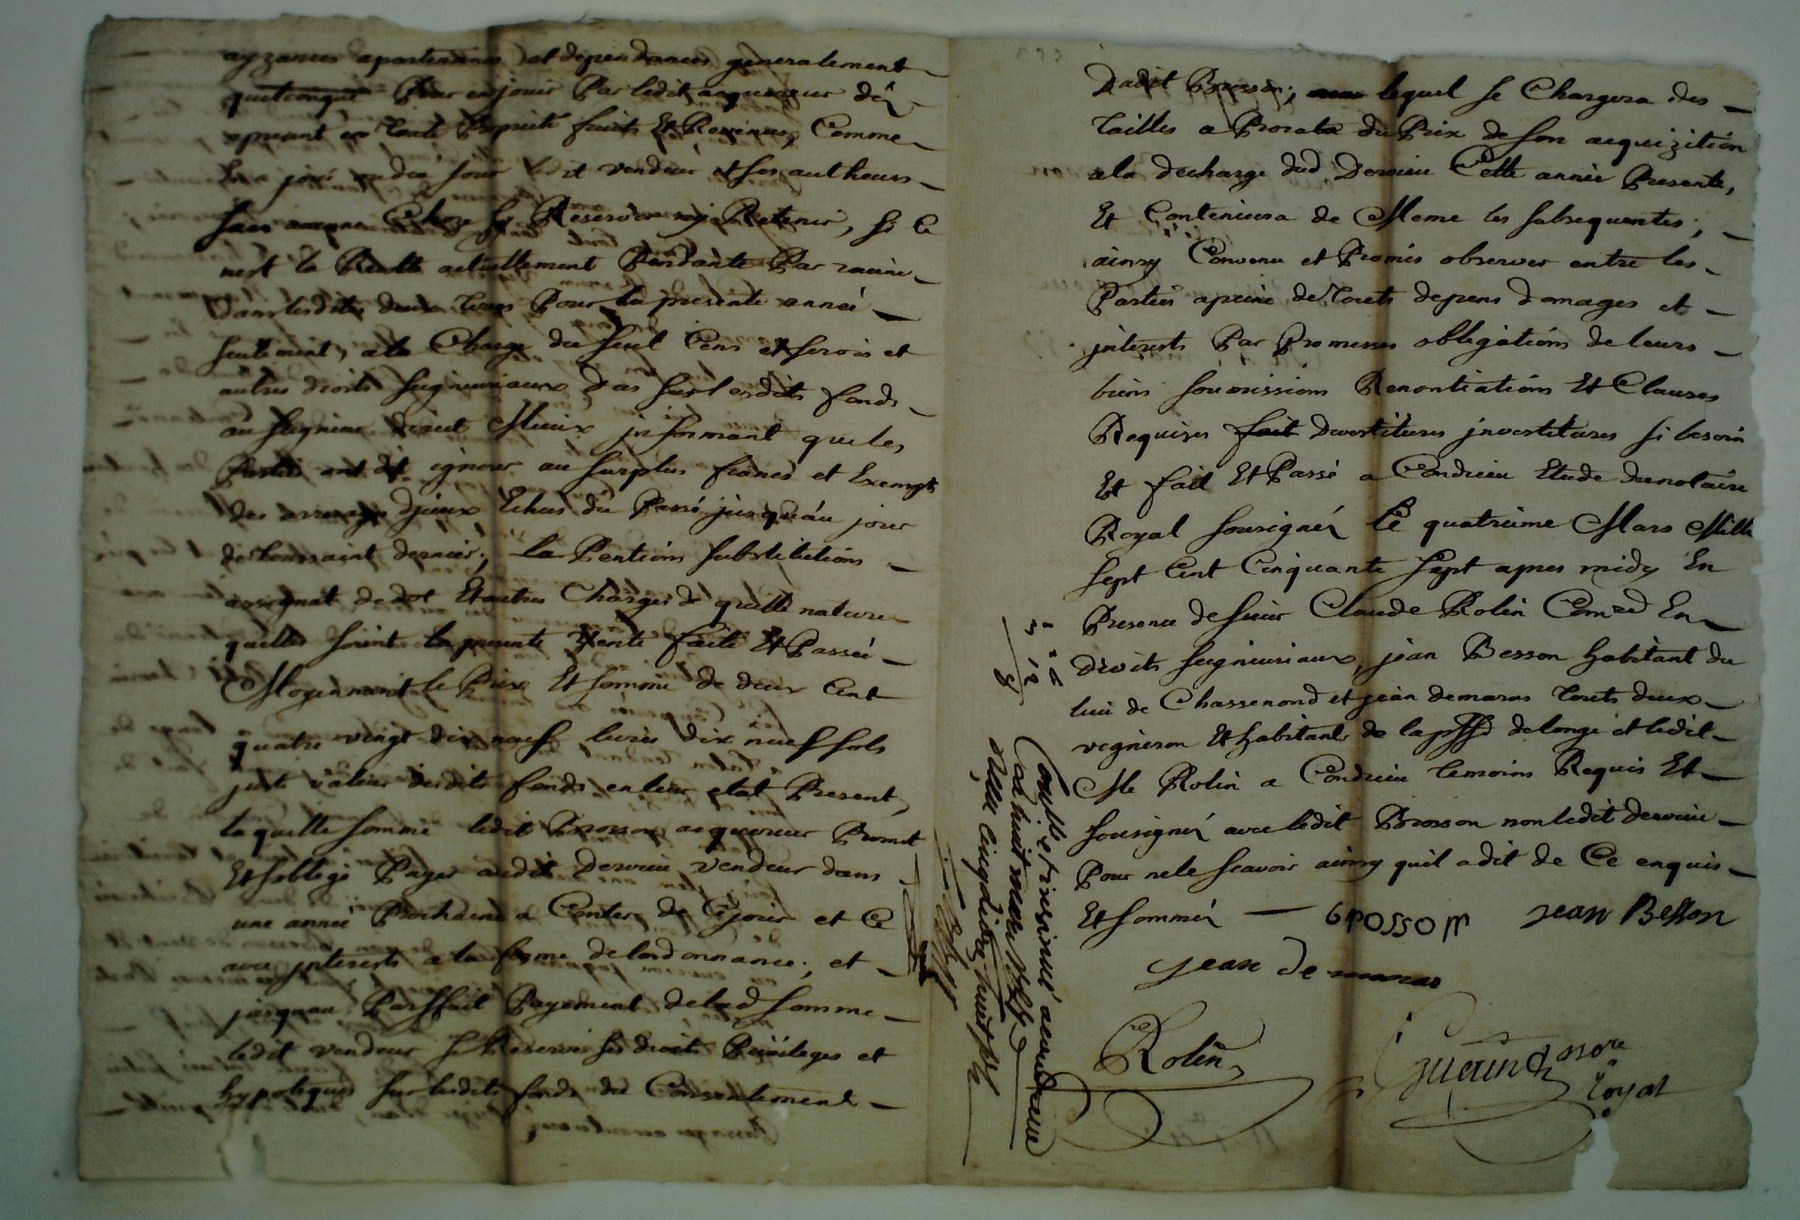 ayzances apartenances et dependances generalement
quelconque Pour enjouir Par ledit acquereur dés
apresant en toute Proprieté fruits Et Revenus, Comme
En a joui audis jour ledit vendeur et ses autheurs
sans aucune Chose sy Reserver ny Retenir, si ce
nest la Recolte actuellement Pendante Par racine
dans lesdits deux Pour la presente année
seulement, a la Charge du seul Cens et servis et
autres droits seigneuriaux das sur lesdits fonds
au seigneur direct Mieux jnformant que les
Parties ont dit ignorer au surplus francs et Exempts
des arrerages djceux Echus du Passé jusquáu jour
de toussaint dernier; la Pention substitution
assignat de dot Et autres Charges de quelle nature
quelles soint la presente Vente faite Et Passée
Moyennant le Prix Et somme de deux Cent
quatre vingt dix neuf livres dix neuf sols
juste valeur desdits fonds en leur etat Present,
laquelle somme ledit Brosson acquereur Promet
Et soblige Payer audit Dervieu vendeur dans
une année Prochaine a Conter de Cejour et Ce
avec jnterests a la forme delordonnance; et
jusquau Parffait Payement delad somme
ledit vendeur se Reserve ses droits Privileges et
hypoteques sur lesdits fonds du Consentement
Dudit Brosson; lequel se Chargera des
Tailles a Prorata du Prix de son acquizition
a la decharge dud. Dervieu Cette année Presente,
Et Continuera de Meme les subsequentes;
ainsy Convenu et Promis observer entre les
Parties apeine de Touts depens domages et
jnterests Par Promesses obligations de leurs
biens soumissions Renontiations Et Clauses
Requises fait devestitures jnvestitures si besoin
Et fait Et Passé a Condrieu Etude dunotaire
Royal sousigné Le quatrieme Mars Mille
sept Cent Cinquante sept apres midy En
Presence de sieur Claude Rolin Comre En
Droits seigneuriaux, jean Besson habitant du
lieu de Chassenond et jean demaras touts deux
vigneron Et habitants de la de longe et ledit
Me Rolin a Condrieu temoins Requis Et
sousignés avec ledit Brosson non ledit dervieu
Pour ne le scavoir ainsy quil a dit de Ce enquis
Et sommé — brosson jean Besson
jean de maras
Rolin
Guerin nore
royal
Conllé et insinué a Condrieu
Le huit mars 1757